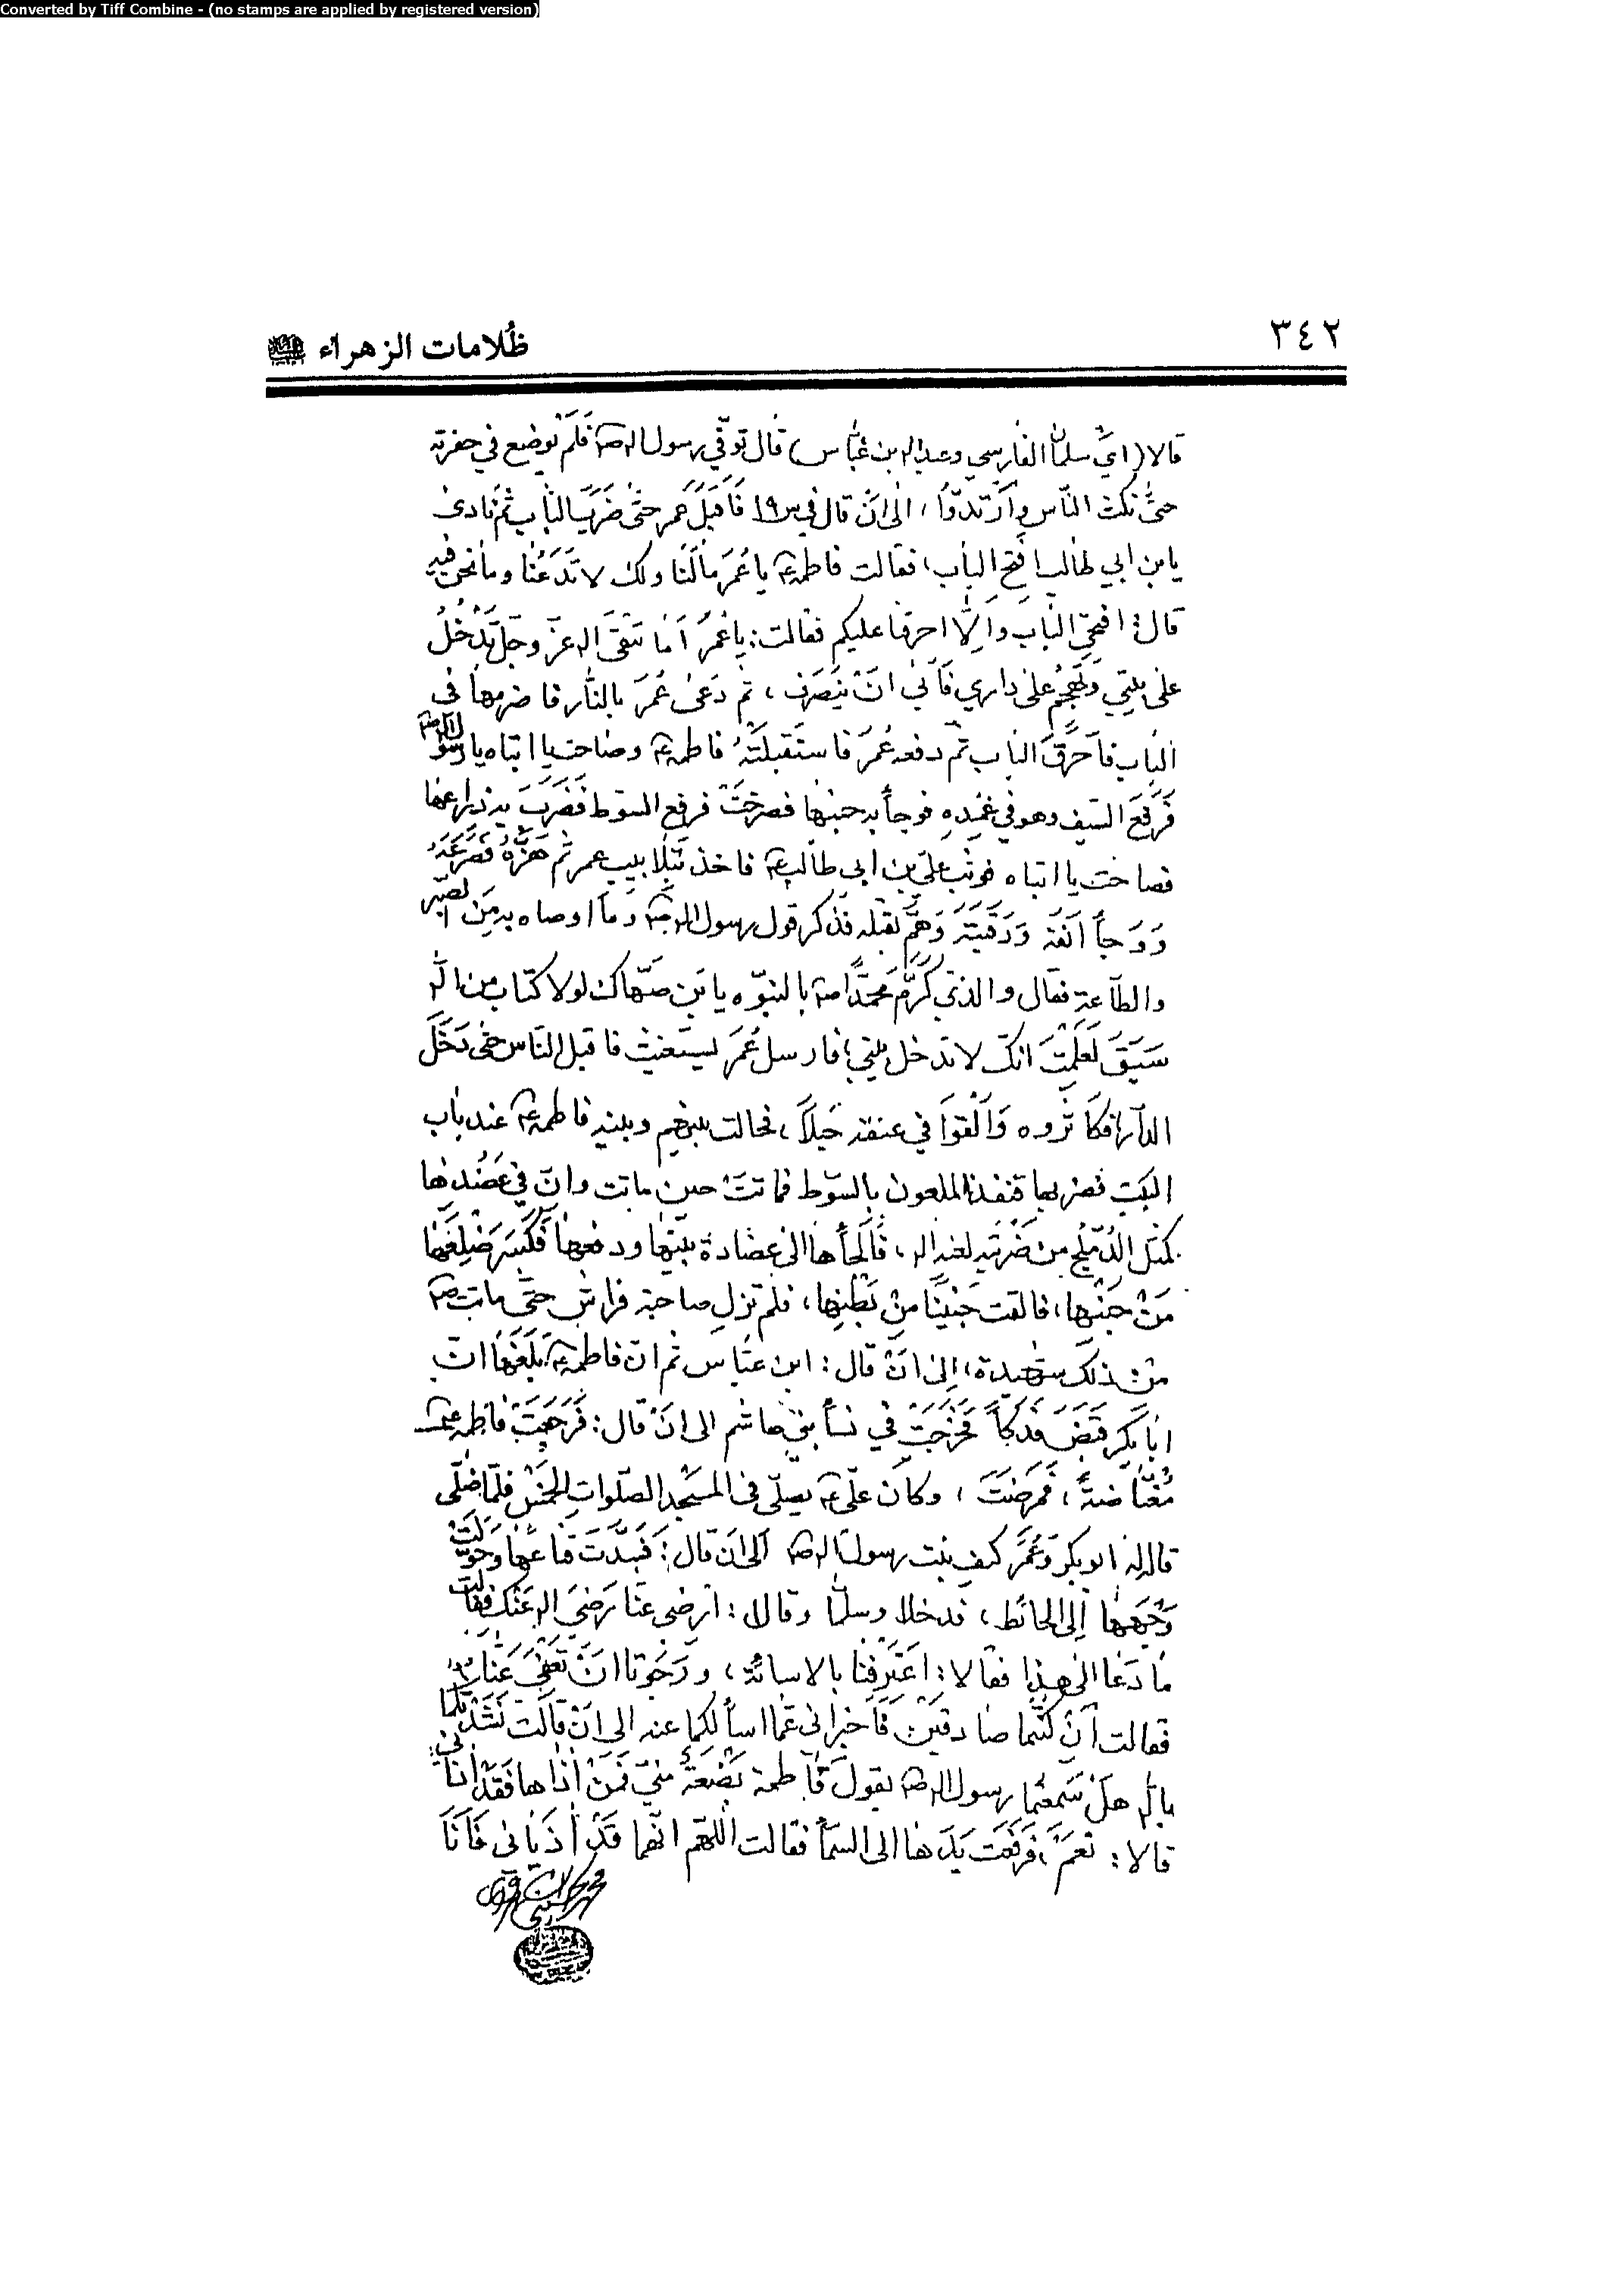 Converted by Tiff Combine - (no stamps are applied by registered version)
٣٤٢
ظُلامات الزهراء
قالا (اي سلمان الفارسي وعبد الله بن عباس) قال توفّي رسول الله ص فَلَمْ يوضع في حفرته
حتّى نكث النّاس وارتدّوا، الى ان قال في س١٩ فَاَقبَلَ عمر حتى ضَرَبَ الباب ثم نادى
يابن ابي طالب افتح الباب، فقالت فاطمة ع يا عُمَرَ مالَنا ولك لا تَدَعُنا وما نحن فيه
قال: افتحي الباب واِلّا احرقنا عليكم فقالت: يا عُمَرُ اَمَا تتقي الله عزّ وجلّ تَدْخُلُ
على بيتي وتَهجُم على داري فَاَبى انْ يَنصَرِف، ثم دَعى عُمَرَ بالنّار فاضرمها في
الباب فاَحرَقَ الباب ثم دفعه عُمَر فاستَقبلَتْهُ فاطمة ع وصاحت يا ابتاه يا رسول الله ص
فَرَفَعَ السّيف وهو في غِمدِهِ فوجأ به جنبها فصرخَتْ فرفع السّوط فَضَرَبَ به ذراعها
فصاحت يا ابتاه فوثب عليّ بن ابي طالب ع فاخذ بتلابيب عمر ثم هَزَّهُ فَصَرَعَهُ
وَوَجأَ اَنفَهُ وَرَقَبَتَهُ وَهَمَّ بقتله فذكر قول رسول الله ص وَما اوصاه به مِنَ الصّبر
والطّاعة فقال والذي كَرَّمَ محمّدًا ص بالنبوّه يابن صَهّاك لولا كتاب من الله
سَبَقَ لَعَلِمْتَ انّك لا تدخل بيتي، فارسل عُمَرَ يستغيث فاقبل النّاس حتى دَخَلَ
الدّار فكاثروه وَاَلْقَوا في عنقه حَبلاً، فحالت بينهم وبينه فاطمة ع عند باب
البَيت فضربها قنفذ الملعون بالسّوط فماتَتْ حين ماتت وانّ في عَضُدِها
كمثل الدّملج من ضَرْبَتِه لعنه الله، فَاَلجأها الى عضادة بيتها ودفعها فَكَسَرَ ضِلعَها
مِنْ جَنبِها، فالقت جَنينًا مِنْ بَطنِها، فلم تزل صاحبة فراش حتّى ماتت ص
من ذلك شهيدة، الى انْ قال: ابن عبّاس ثم انّ فاطمة ع بَلَغَها انّ
ابا بكر قَبَضَ فَدَكاً فَخَرَجَتْ في نسأ بني هاشم الى انْ قال: فَرَجَعَتْ فاطمة ع
مُغتاضةً، فَمَرِضَتْ، وكان عليّ ع يصلّي في المسجد الصّلوات الخمس فلمّا صلّى
قال له ابو بكر وعُمَرَ كيف بنت رسول الله ص الى ان قال: فَبَدَّت قناعها وحوّلت
وَجْهَها الى الحائط، فدخلا وسلّما وقالا: ارضى عنّا رَضِيَ الله عَنك فقالت
مَا دَعَا الى هذا فقالا: اِعْتَرَفنا بالاسائة، ورَجَونا انْ تَعفي عَنّا
فقالت انْ كنتما صادقين فَاَخبراني عَمّا اسألكما عنه الى انْ قالَتْ نَشَدتُكما
بالله هلْ سَمِعتُما رسول الله ص يقول فاطمة بَضْعَةٌ منّي فَمَنْ اذاها فَقَدْ اذاني:
قالا: نَعَمْ، فَرَفَعَت يَدَها الى السّمأ فقالت اللّهم انّهما قَدْ اَذَياني فَاَنَا